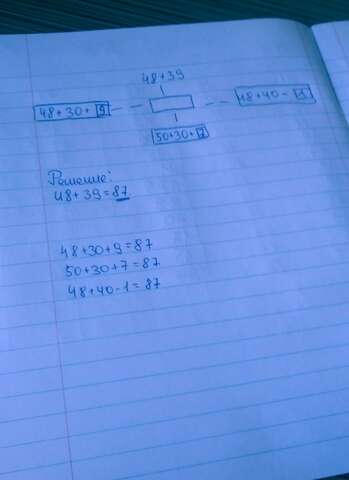 48+39
48+30+9
48+40-1
50+30+7
Решение:
48+39=87
48+30+9=87
50+30+7=87
48+40-1=87